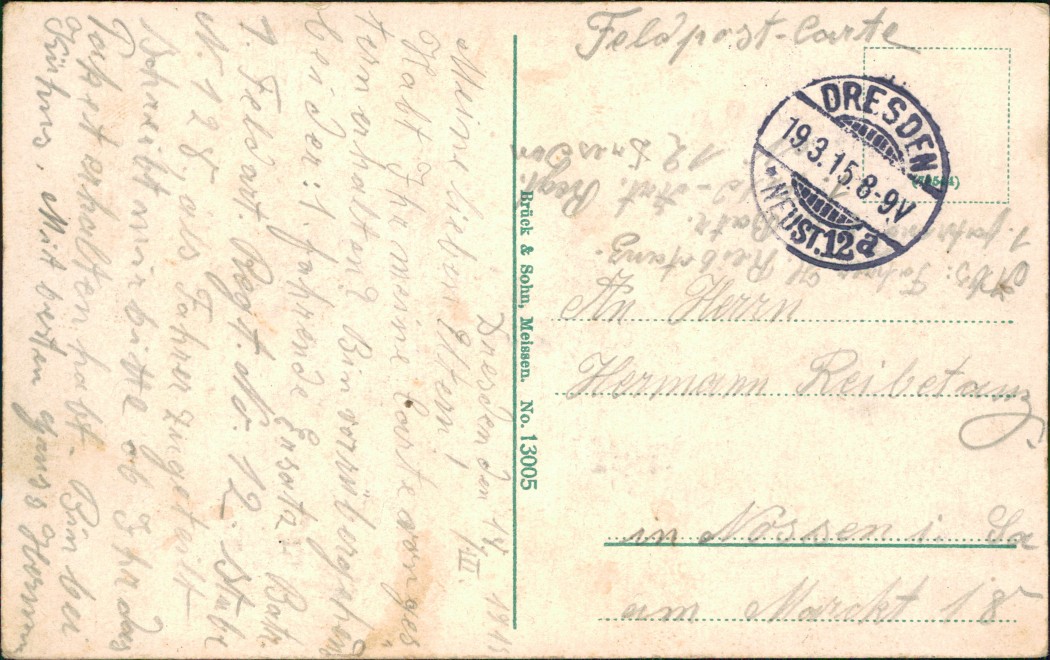 Feldpost-Carte
DRESDEN
19.3.15.8-9V
NEUST.12a
Abs: Fahrer
Reibetanz.
1. fahrende
Batr.
Art. Regt.
12 Dresden
An Herrn
Hermann Reibetanz
in Nossen i. Sa
am Marckt 18
Brück & Sohn, Meissen. No. 13005
Dresden den 1915
Meine lieben Eltern!
Habt Ihr meine Carte von
fern erhalten? Bin
bei der: 1 fahrende Ersatz Batr.
1. Feldart. Regt. No. 12. Stube
N. 128, als Fahrer zugeteilt
Schreibt mir bitte ob Ihr das
erhalten habt. Bin bei
Mit besten